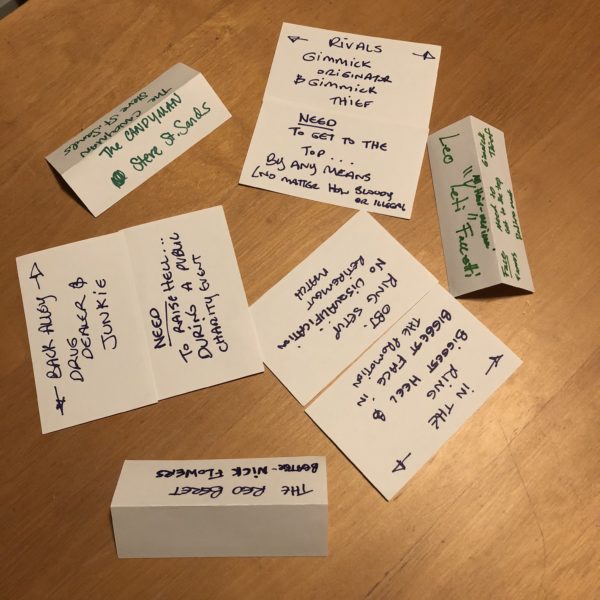 The CANDYMAN
Steve St. Sands
The CANDYMAN
Steve St. Sands
RIVALS
GIMMICK
ORIGINATOR
& GIMMICK
THIEF
NEED
TO GET TO THE
TOP...
BY ANY MEANS
(NO MATTER HOW BLOODY
OR ILLEGAL
Leo "Yeti" Ferretti
GIMMICK
THIEF
BACK ALLEY
DRUG
DEALER &
JUNKIE
NEED
TO RAISE HELL...
DURING A PUBLIC
CHARITY EVENT
IN THE
RING
BIGGEST HEEL &
BIGGEST FACE IN
THE PROMOTION
OBJ
RING SETUP
NO DISQUALIFICATION
RETIREMENT
MATCH
THE RED BERET
NICK FLOWERS